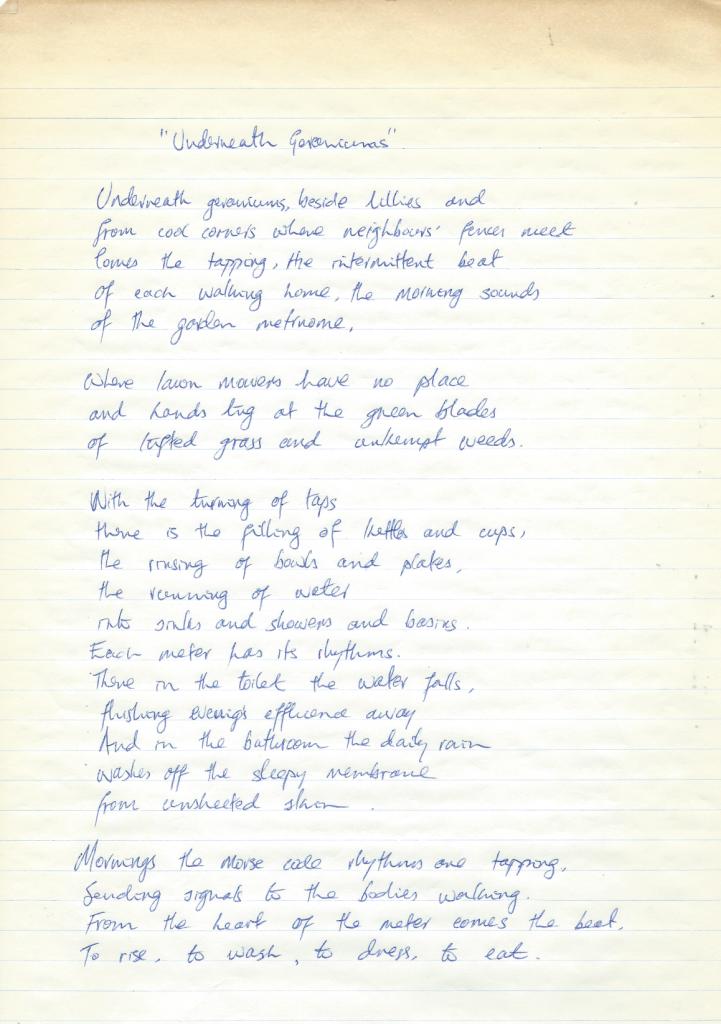 "Underneath Geraniums"
Underneath geraniums, beside lillies and
from cool corners where neighbours' fences meet
Comes the tapping, the intermittent beat
of each waking home, the morning sounds
of the garden metrnome,
Where lawn mowers have no place
and hands tug at the green blades
of tufted grass and unkempt weeds.
With the turning of taps
there is the filling of kettles and cups,
the rinsing of bowls and plates,
the running of water
into sinks and showers and basins.
Each meter has its rhythms.
There in the toilet the water falls,
flushing evenig's effluence away
And in the bathroom the daily rain
washes off the sleepy membrane
from unsheeted skin.
Mornings the morse code rhythms are tapping,
Sending signals to the bodies walking.
From the heart of the meter comes the beat,
To rise, to wash, to dress, to eat.